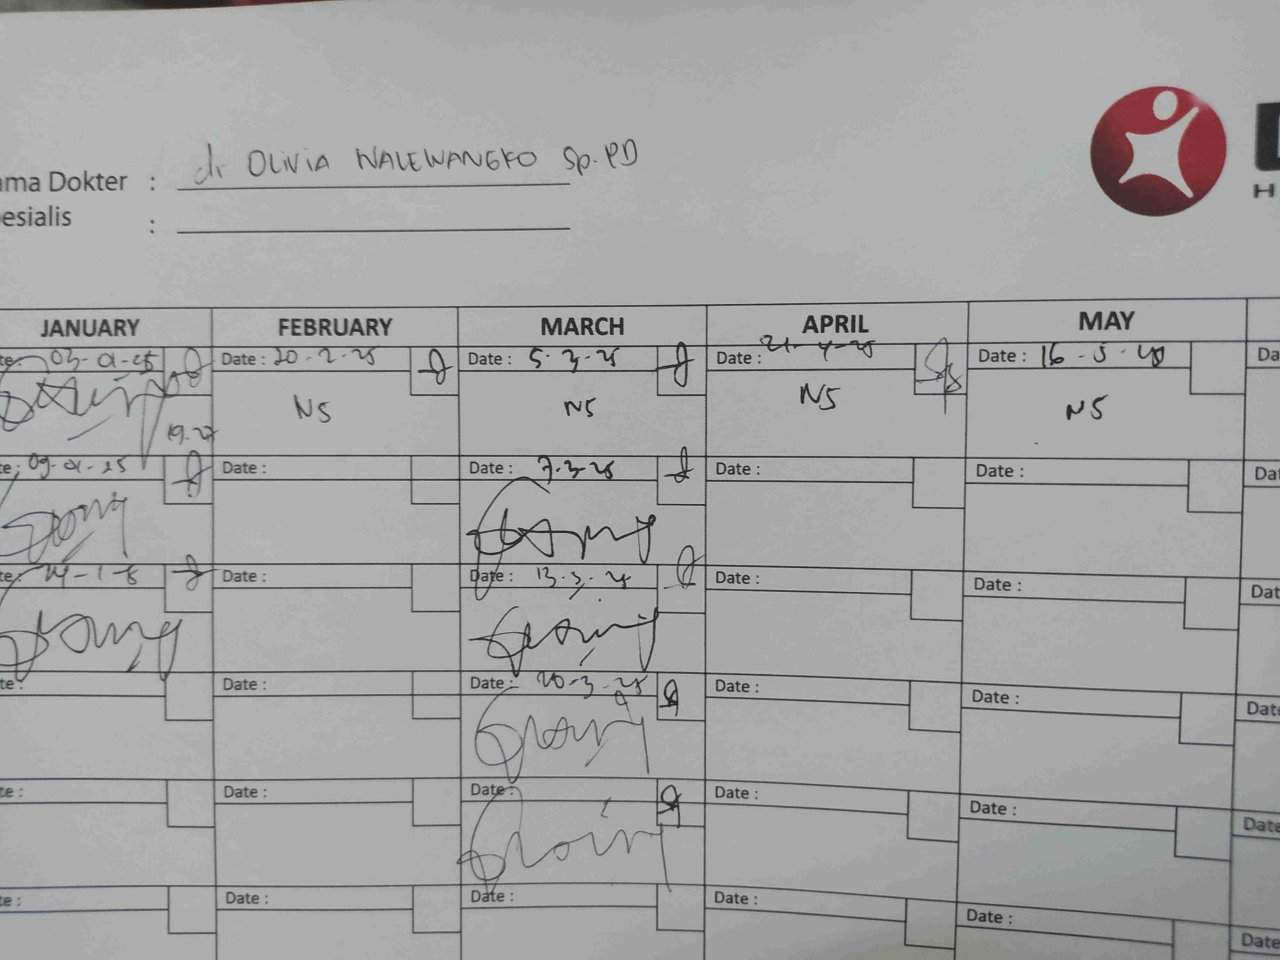 ama Dokter : dr OLIVIA WALEWANGKO Sp.PD
esialis :
H
JANUARY FEBRUARY MARCH APRIL MAY
te: 03-01-25 Date : 20-2-25 Date : 5-3-25 Date : 21-4-25 Date : 16-5-25 Da
19.27 N5 N5 N5 N5
te: 09-01-25 Date : Date : 7-3-25 Date : Date : Dat
te: 14-1-5 Date : Date : 13-3-25 Date : Date : Dat
te: Date : Date : 20-3-25 Date : Date : Dat
te : Date : Date : Date : Date : Date
te : Date : Date : Date : Date : Date